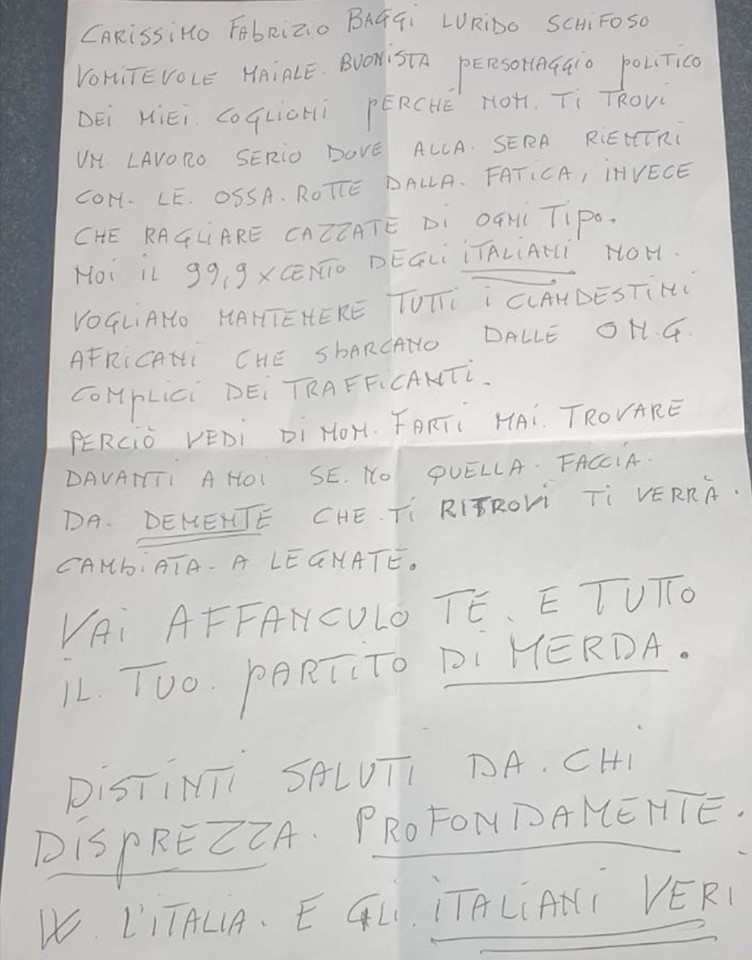 CARISSIMO FABRIZIO BAGGI LURIDO SCHIFOSO
VOMITEVOLE MAIALE. BUONISTA PERSONAGGIO POLITICO
DEI MIEI COGLIONI PERCHÉ NON. TI TROVI
UN LAVORO SERIO DOVE ALLA. SERA RIENTRI
CON. LE. OSSA. ROTTE DALLA. FATICA, INVECE
CHE RAGLIARE CAZZATE DI OGNI TIPO.
NOI IL 99,9 x CENTO DEGLI ITALIANI NON.
VOGLIAMO MANTENERE TUTTI I CLANDESTINI
AFRICANI CHE SBARCANO DALLE O N.G.
COMPLICI DEI TRAFFICANTI.
PERCIÒ VEDI DI NON. FARTI MAI. TROVARE
DAVANTI A NOI SE. NO QUELLA. FACCIA.
DA. DEMENTE CHE. TI RITROVI TI VERRÀ.
CAMBIATA. A LEGNATE.
VAI AFFANCULO TE. E TUTTO
IL. TUO. PARTITO DI MERDA.
DISTINTI SALUTI DA. CHI
DISPREZZA. PROFONDAMENTE.
W. L'ITALIA. E GLI. ITALIANI VERI